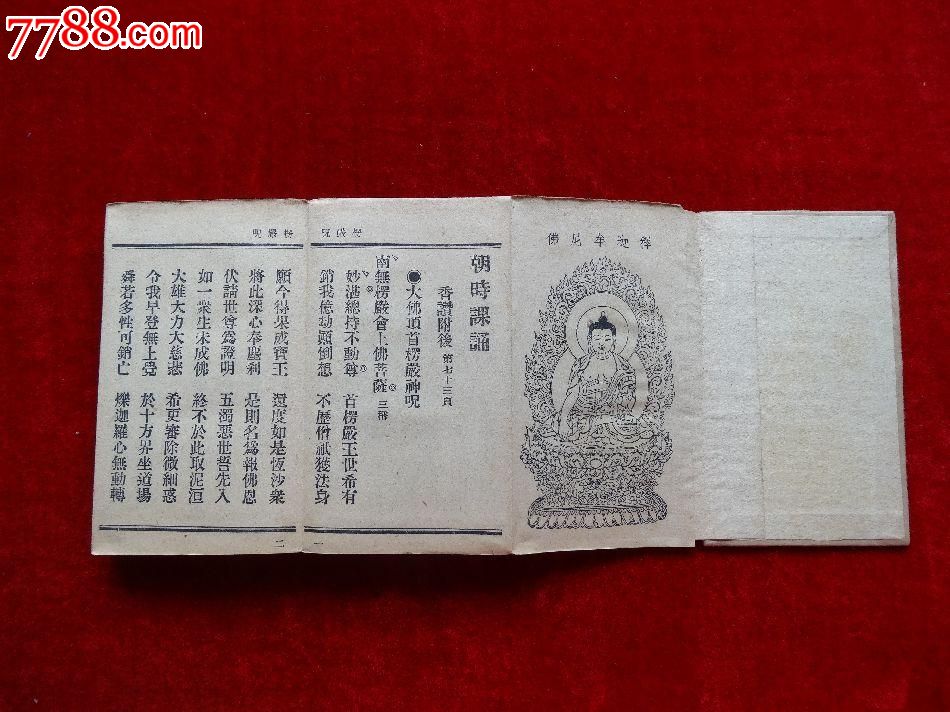 7788.com
釋迦牟尼佛
楞嚴咒
朝時課誦
香讚附後 第七十三頁
●大佛頂首楞嚴神咒
南無楞嚴會上佛菩薩 三稱
妙湛總持不動尊 首楞嚴王世希有
銷我億劫顛倒想 不歷僧祇獲法身
一
楞嚴咒
願今得果成寶王 還度如是恆沙衆
將此深心奉塵剎 是則名爲報佛恩
伏請世尊爲證明 五濁惡世誓先入
如一衆生未成佛 終不於此取泥洹
大雄大力大慈悲 希更審除微細惑
令我早登無上覺 於十方界坐道場
舜若多性可銷亡 爍迦羅心無動轉
二